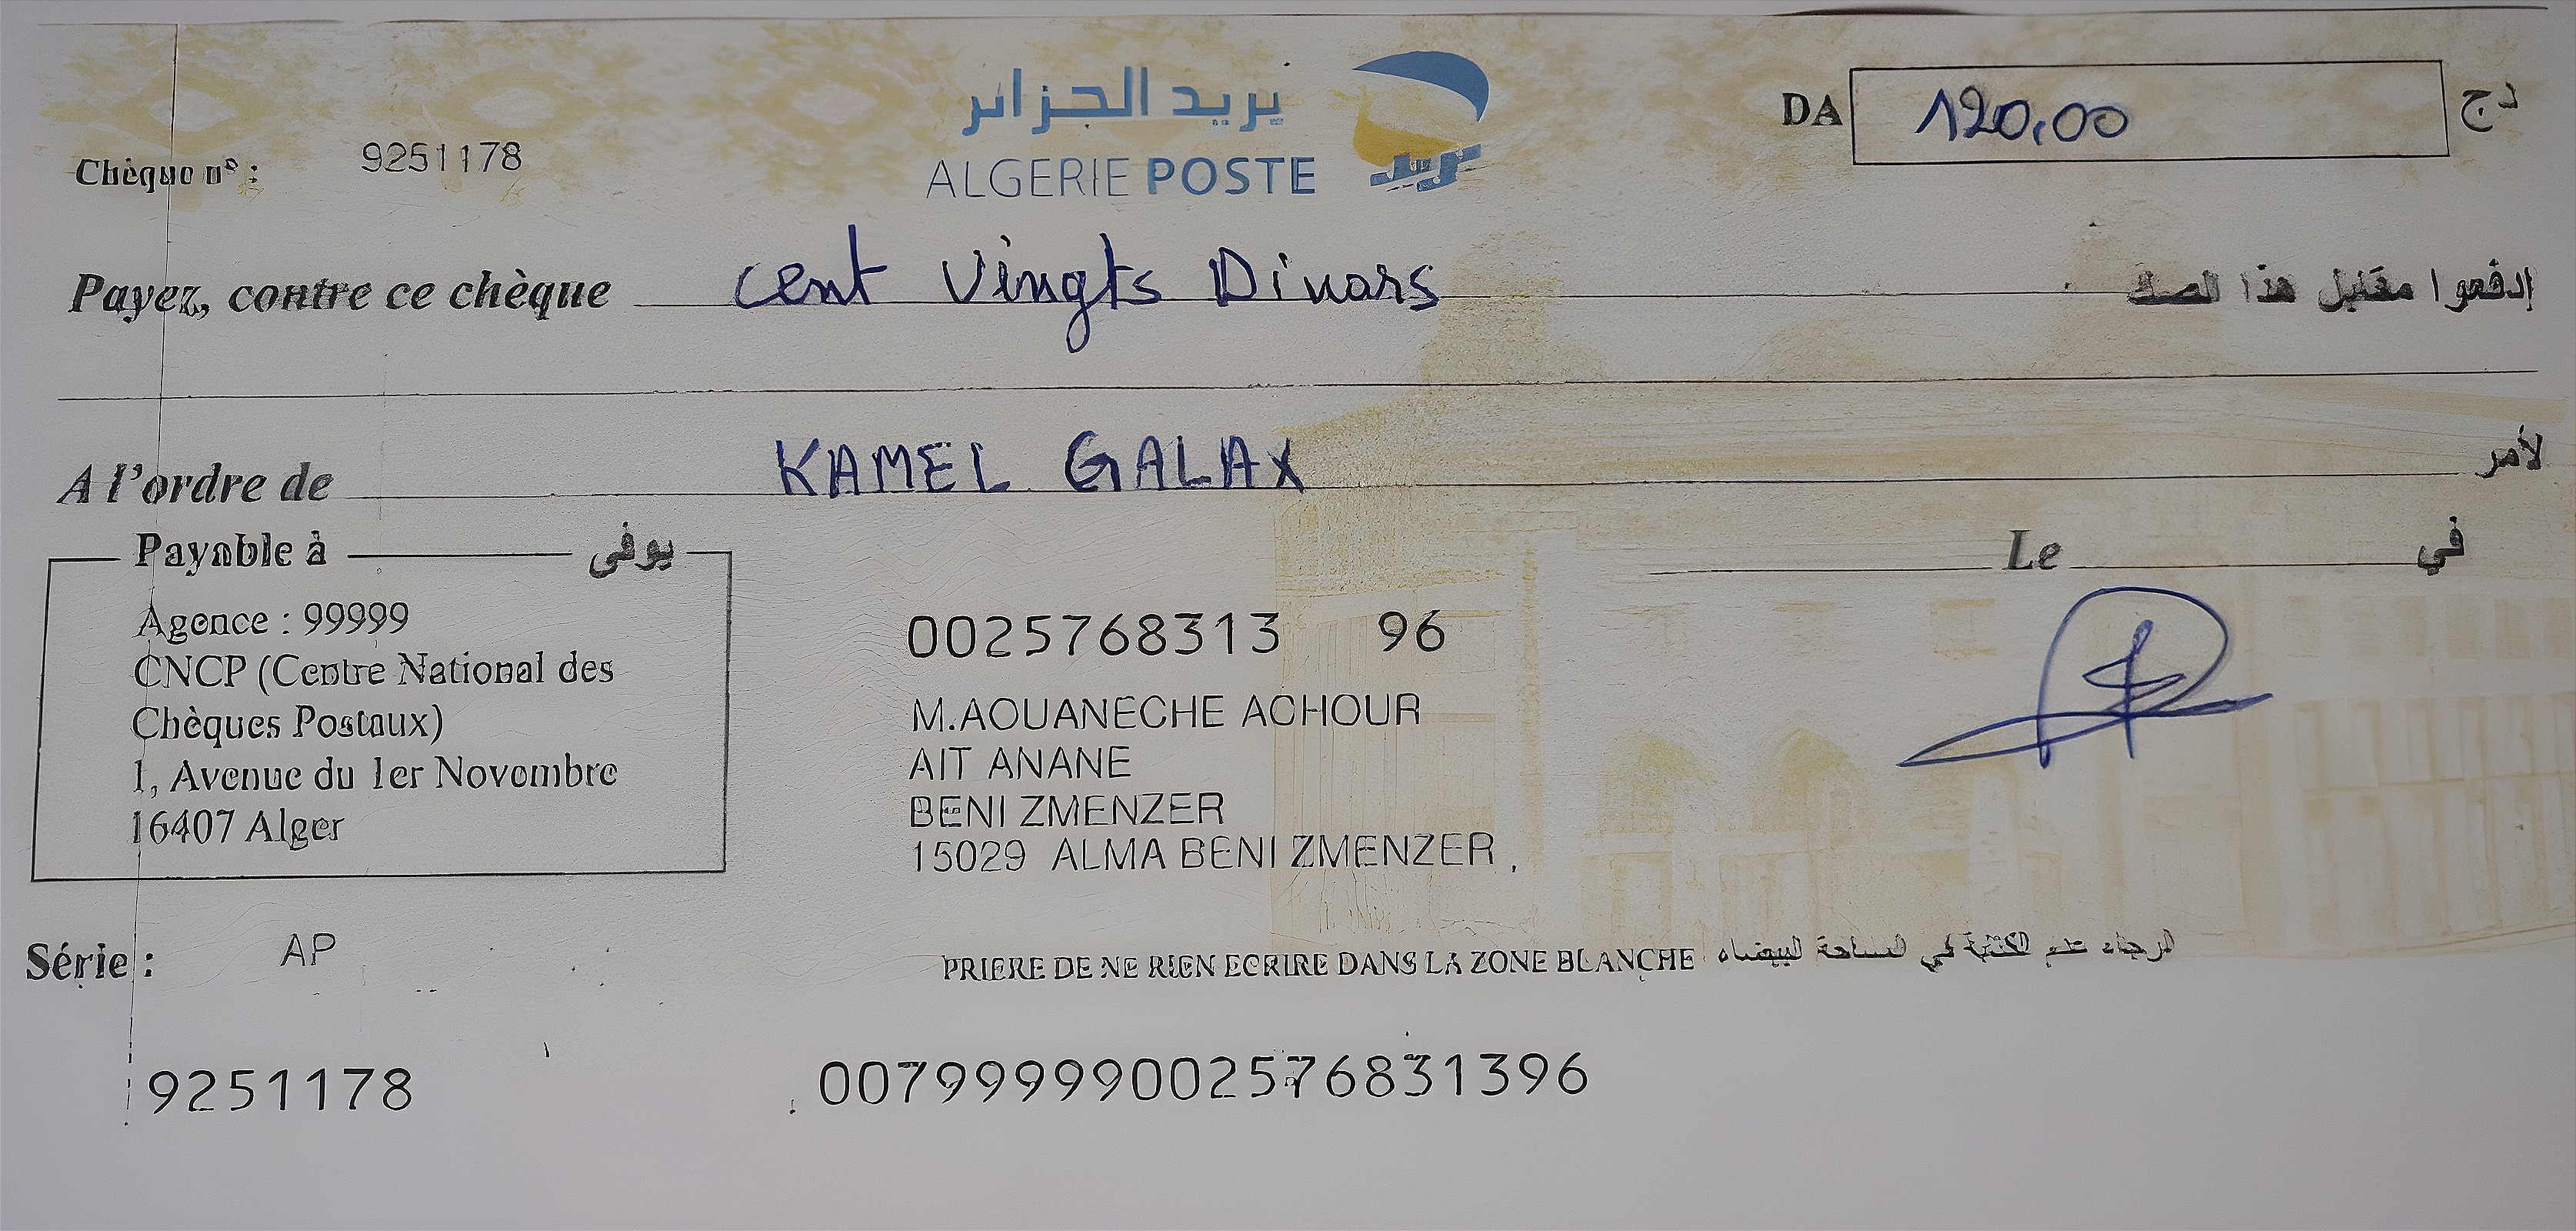 بريد الجزائر
ALGERIE POSTE
بريد
DA 120,00 دج
Chèque n° : 9251178
Payez, contre ce chèque Cent Vingts Dinars إدفعوا مقابل هذا الصك
A l'ordre de KAMEL GALAX لأمر
Payable à يوفى
Le في
Agence : 99999
CNCP (Centre National des
Chèques Postaux)
1, Avenue du 1er Novembre
16407 Alger
0025768313 96
M.AOUANECHE ACHOUR
AIT ANANE
BENI ZMENZER
15029 ALMA BENI ZMENZER ,
Série : AP
PRIERE DE NE RIEN ECRIRE DANS LA ZONE BLANCHE الرجاء عدم الكتابة في المساحة البيضاء
9251178
00799999002576831396